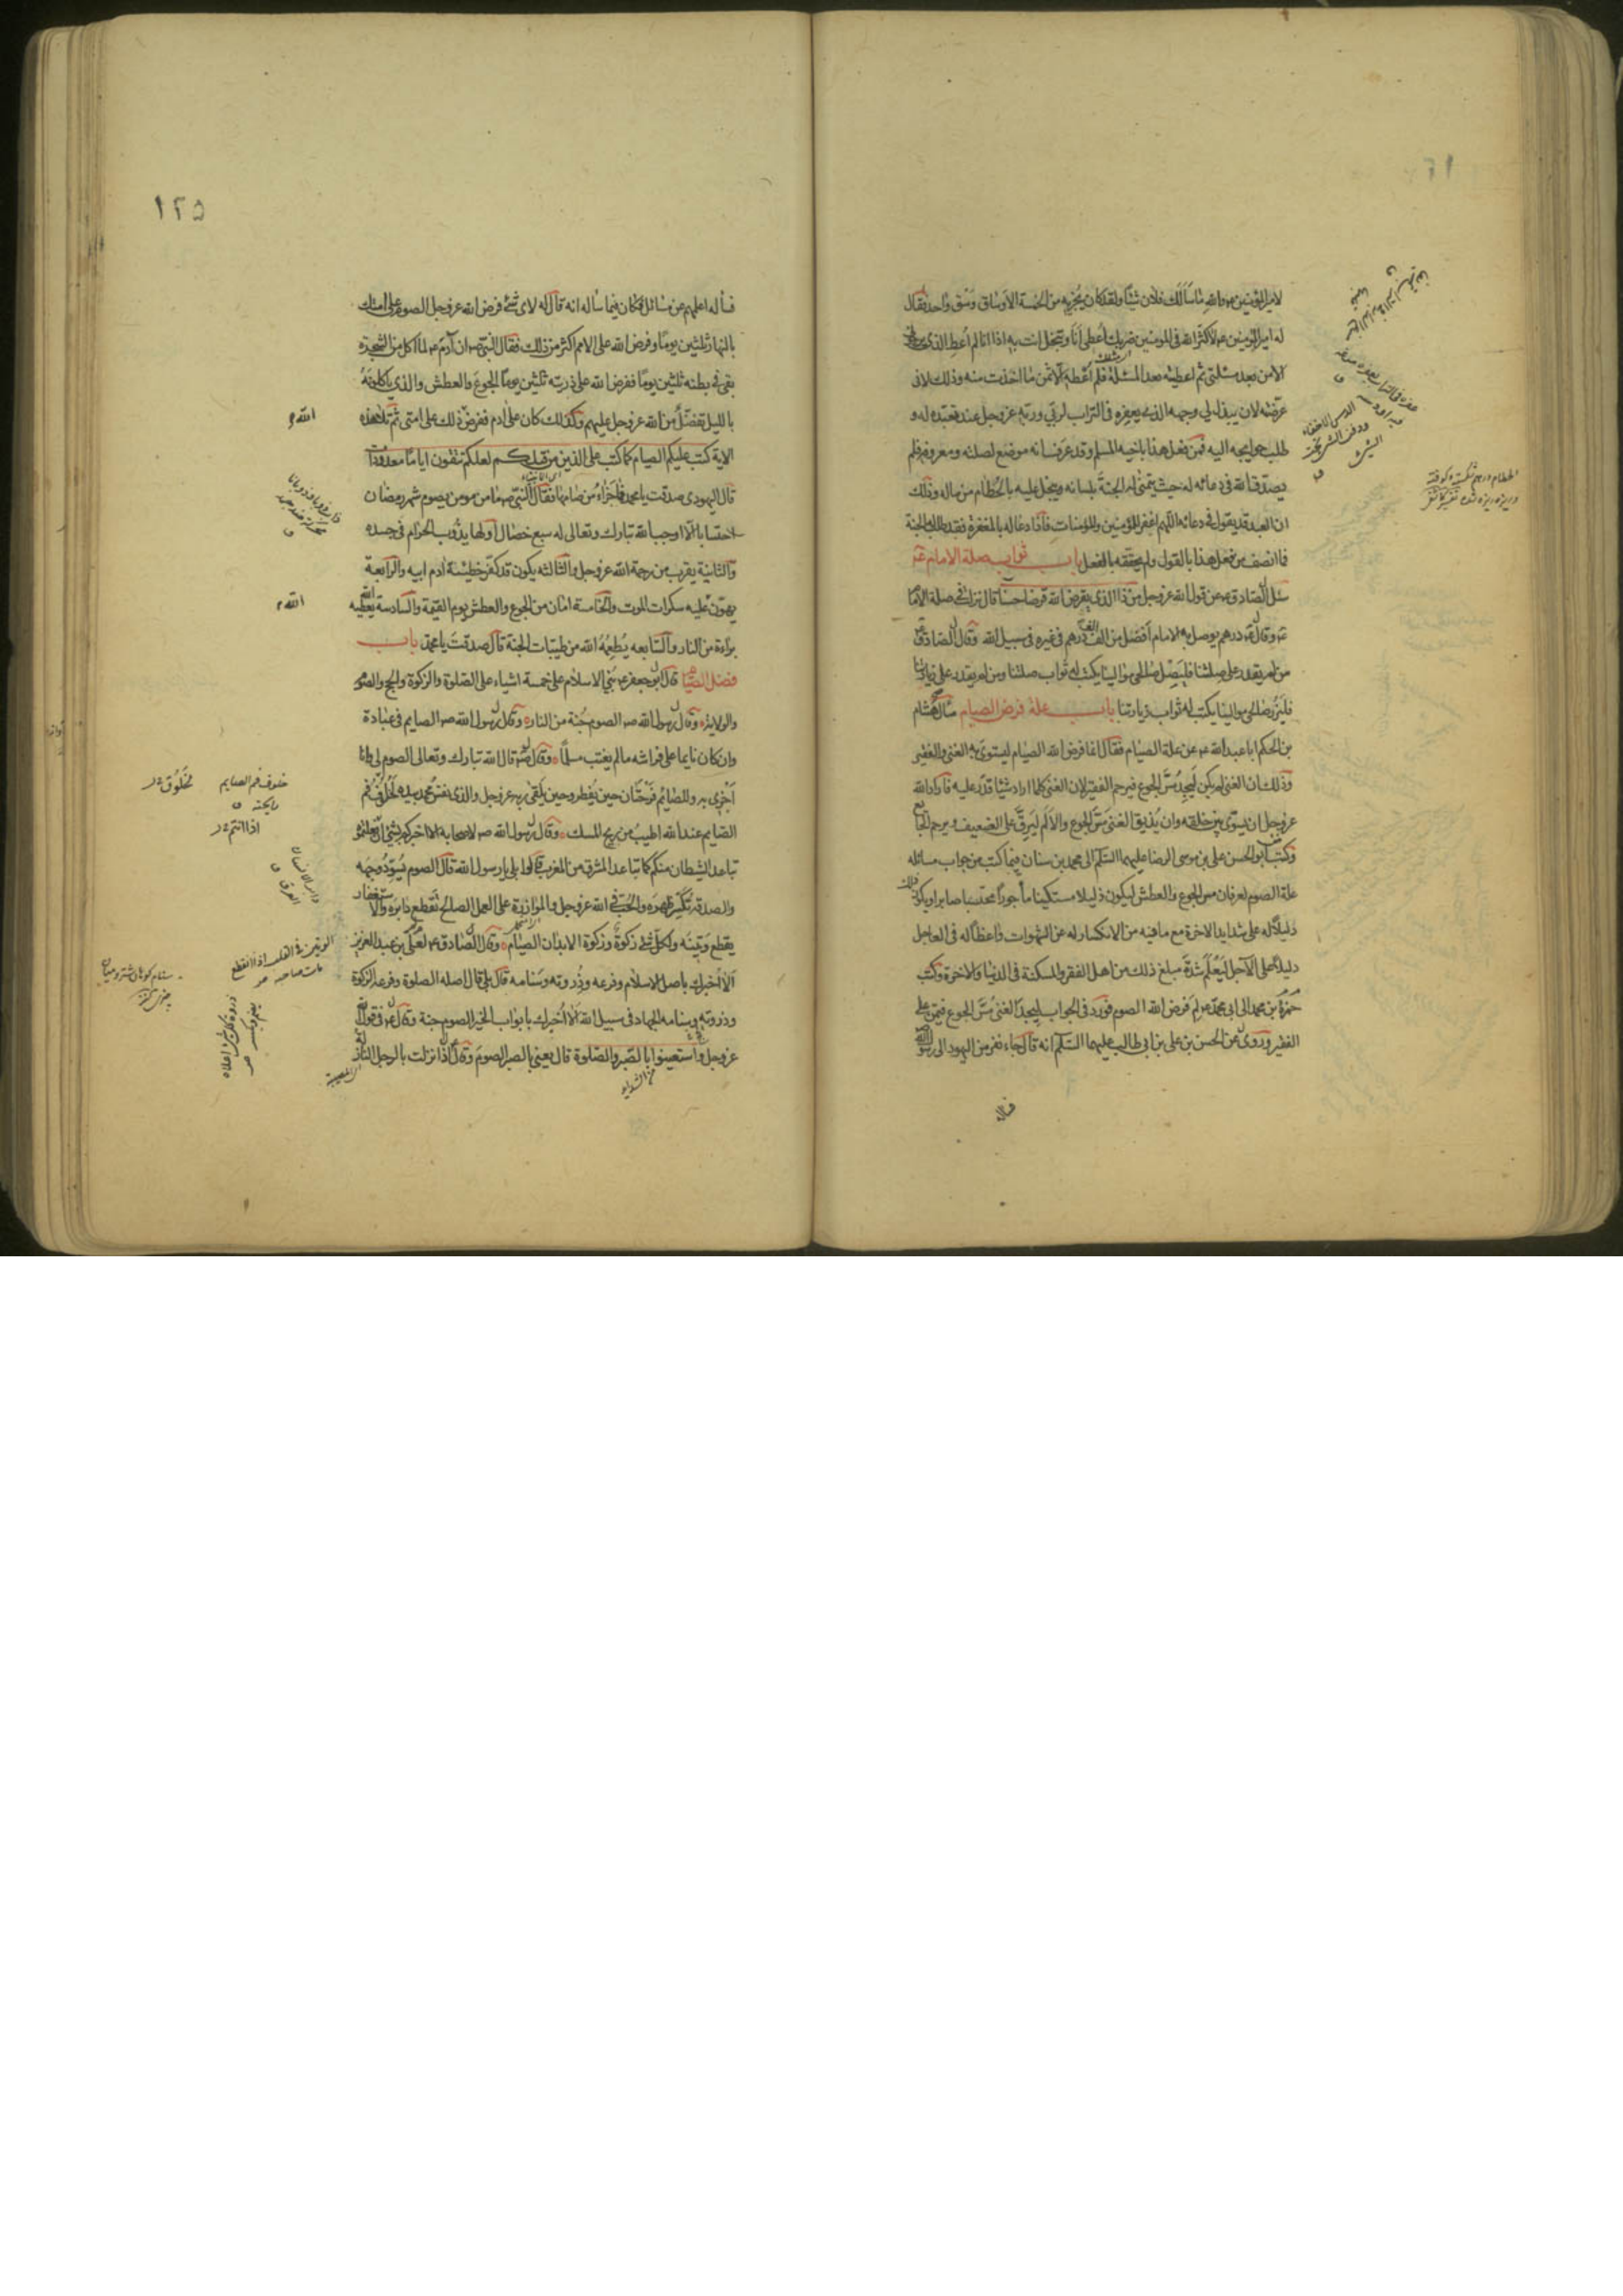 لامير المؤمنين ع والله ما سالك فلان شيئا ولقد كان يجزيه من الخمسة الاوساق وسق واحد فقال
له امير المؤمنين ع لا كثر الله في المؤمنين ضربك اعطى انا وتبخل انت به اذا انا لم اعط الذي يرجوني
الا من بعد مسئلتي ثم اعطيته بعد المسئلة فلم اعطه الا ثمن ما اخذت منه وذلك لاني
عرضته لان يبذل لي وجهه الذي يعفره في التراب لربي وربه عز وجل عند تعبده له و
طلب حوايجه اليه فمن فعل هذا باخيه المسلم وقد عرف انه موضع لصلته ومعروفه فلم
يصدق الله في دعائه له حيث يتمنى له الجنة بلسانه ويبخل عليه بالحطام من ماله وذلك
ان العبد قد يقول في دعائه اللهم اغفر للمؤمنين والمؤمنات فاذا دعا له بالمغفرة فقد طلب له الجنة
فما انصف من فعل هذا بالقول ولم يحققه بالفعل باب ثواب صلة الامام ع
سئل الصادق ع عن قول الله عز وجل من ذا الذي يقرض الله قرضا حسنا قال نزلت في صلة الامام
ع وقال ع درهم يوصل به الامام افضل من الف الف درهم في غيره في سبيل الله وقال الصادق ع
من لم يقدر على صلتنا فليصل صالحي موالينا يكتب له ثواب صلتنا ومن لم يقدر على زيارتنا
فليزر صالحي موالينا يكتب له ثواب زيارتنا باب علة فرض الصيام سال هشام
بن الحكم ابا عبد الله ع عن علة الصيام فقال انما فرض الله الصيام ليستوي به الغني والفقير
وذلك ان الغني لم يكن ليجد مس الجوع فيرحم الفقير لان الغني كلما اراد شيئا قدر عليه فاراد الله
عز وجل ان يسوي بين خلقه وان يذيق الغني مس الجوع والالم ليرق على الضعيف ويرحم الجايع
وكتب ابو الحسن علي بن موسى الرضا عليهما السلم الى محمد بن سنان فيما كتب من جواب مسائله
علة الصوم لعرفان مس الجوع والعطش ليكون ذليلا مستكينا ماجورا محتسبا صابرا ويكون ذلك
دليلا له على شدايد الاخرة مع ما فيه من الانكسار له عن الشهوات واعظا له في العاجل
دليلا على الآجل ليعلم شدة مبلغ ذلك من اهل الفقر والمسكنة في الدنيا والاخرة وكتب
حمزة بن محمد الى ابي محمد ع لم فرض الله الصوم فورد في الجواب ليجد الغني مس الجوع فيمن على
الفقير وروي عن الحسن بن علي بن ابي طالب عليهما السلم انه قال جاء نفر من اليهود الى رسول الله
فسأله
١٢٥
فسأله اعلمهم عن مسائل فكان فيما سأله انه قال له لاي شئ فرض الله عز وجل الصوم على امتك
بالنهار ثلثين يوما وفرض الله على الامم اكثر من ذلك فقال النبي ص ان آدم ع لما اكل من الشجرة
بقي في بطنه ثلثين يوما ففرض الله على ذريته ثلثين يوما الجوع والعطش والذي ياكلونه
بالليل تفضل من الله عز وجل عليهم وكذلك كان على ادم ففرض ذلك على امتي ثم تلا هذه
الاية كتب عليكم الصيام كما كتب على الذين من قبلكم لعلكم تتقون اياما معدودات
قال اليهودي صدقت يا محمد فما جزاء من صامها فقال النبي ص ما من مومن يصوم شهر رمضان
احتسابا الا اوجب الله تبارك وتعالى له سبع خصال اولها يذوب الحرام في جسده
والثانية يقرب من رحمة الله عز وجل والثالثه يكون قد كفر خطيئة ادم ابيه والرابعة
يهون عليه سكرات الموت والخامسة امان من الجوع والعطش يوم القيمة والسادسة يعطيه الله
براءة من النار والسابعه يطعمه الله من طيبات الجنة قال صدقت يا محمد باب
فضل الصيام قال ابو جعفر ع بني الاسلام على خمسة اشياء على الصلوة والزكوة والحج والصوم
والولاية وقال رسول الله ص الصوم جنة من النار وقال رسول الله ص الصايم في عبادة
وان كان نايما على فراشه ما لم يغتب مسلما وقال ص قال الله تبارك وتعالى الصوم لي وانا
اجزي به وللصايم فرحتان حين يفطر وحين يلقى ربه عز وجل والذي نفس محمد بيده لخلوف فم
الصايم عند الله اطيب من ريح المسك وقال رسول الله ص لاصحابه الا اخبركم بشئ ان فعلتموه
تباعد الشيطان منكم كما تباعد المشرق من المغرب قالوا بلى يا رسول الله قال الصوم يسود وجهه
والصدقة تكسر ظهره والحب في الله عز وجل والموازرة على العمل الصالح تقطع دابره والاستغفار
يقطع وتينه ولكل شئ زكوة وزكوة الابدان الصيام وقال الصادق ع لعلي بن عبد العزيز
الا اخبرك باصل الاسلام وفرعه وذروته وسنامه قال بلى قال اصله الصلوة وفرعه الزكوة
وذروته وسنامه الجهاد في سبيل الله الا اخبرك بابواب الخير الصوم جنة وقال ع في قول الله
عز وجل واستعينوا بالصبر والصلوة قال يعني بالصبر الصوم وقال اذا نزلت بالرجل النازلة
خلوف فم الصايم
رايحته ق
الوتين في القلب اذا انقطع
مات صاحبه